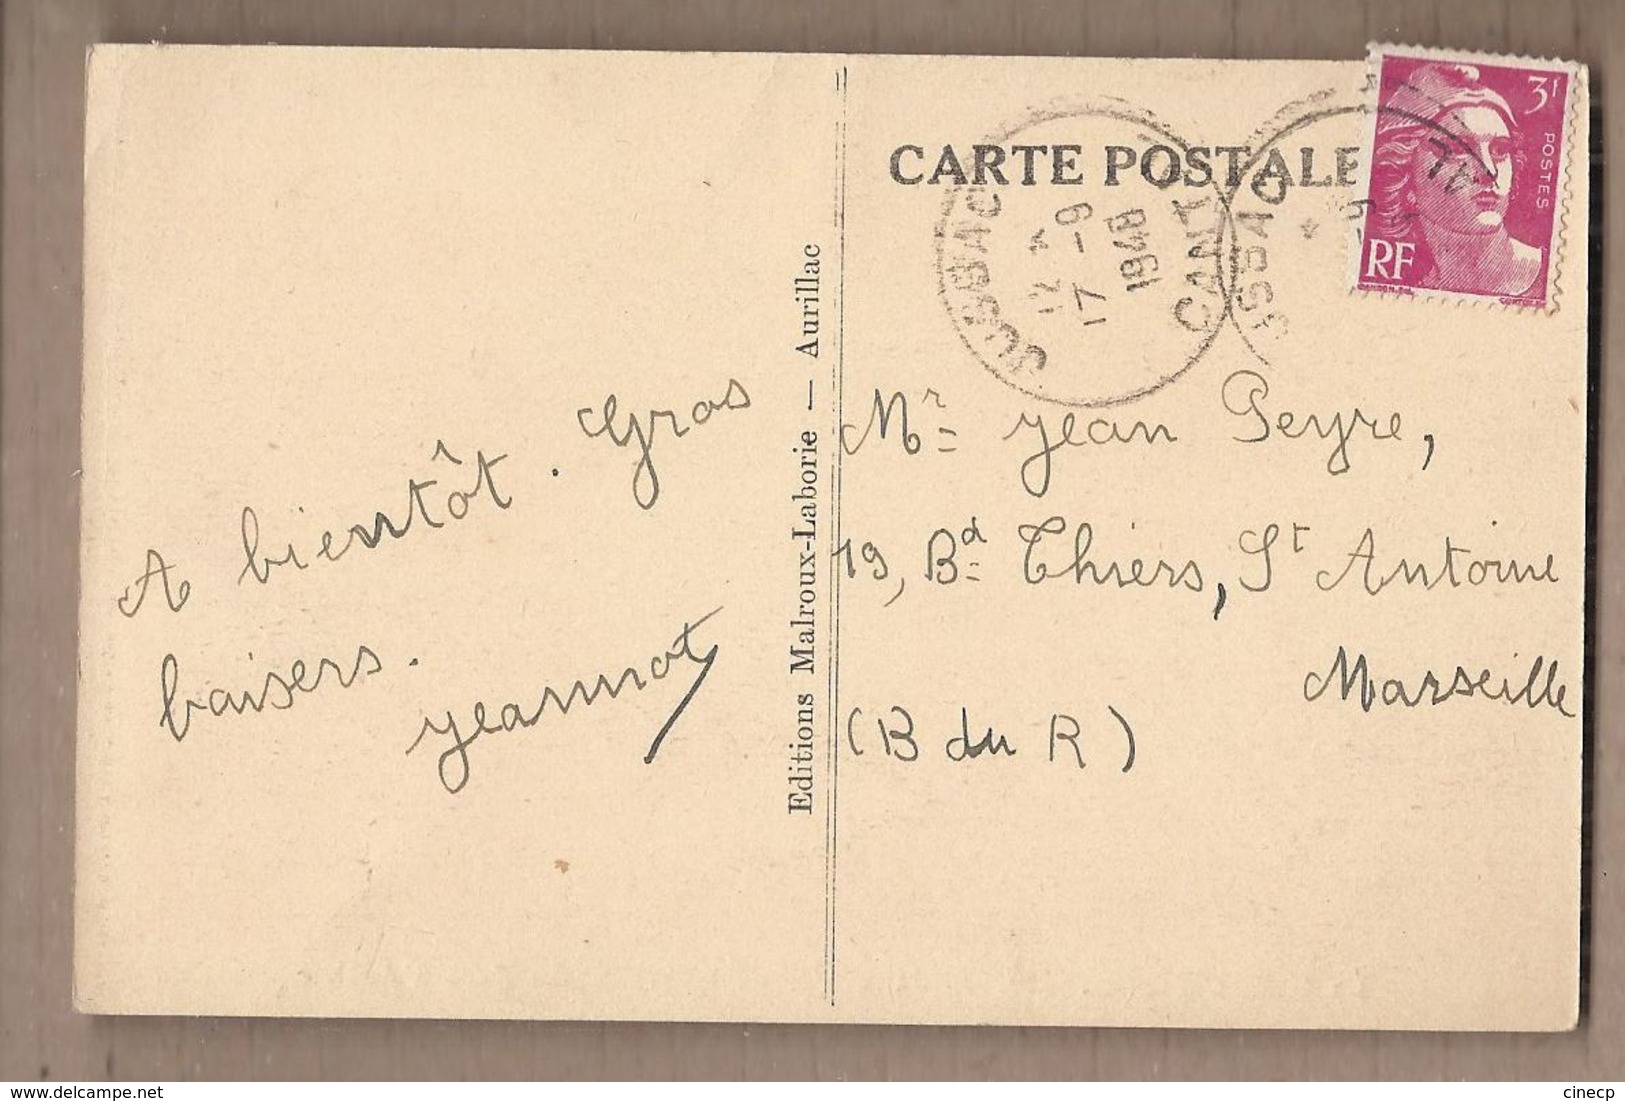 CARTE POSTALE
JUSSAC
17 -9
1948
CANT
3F
POSTES
RF
A bientôt. Gros
baisers.
Jeannot
Editions Malroux-Laborie — Aurillac
Mr Jean Peyre,
19, Bd Thiers, St Antoine
Marseille
(B du R)
cinecp